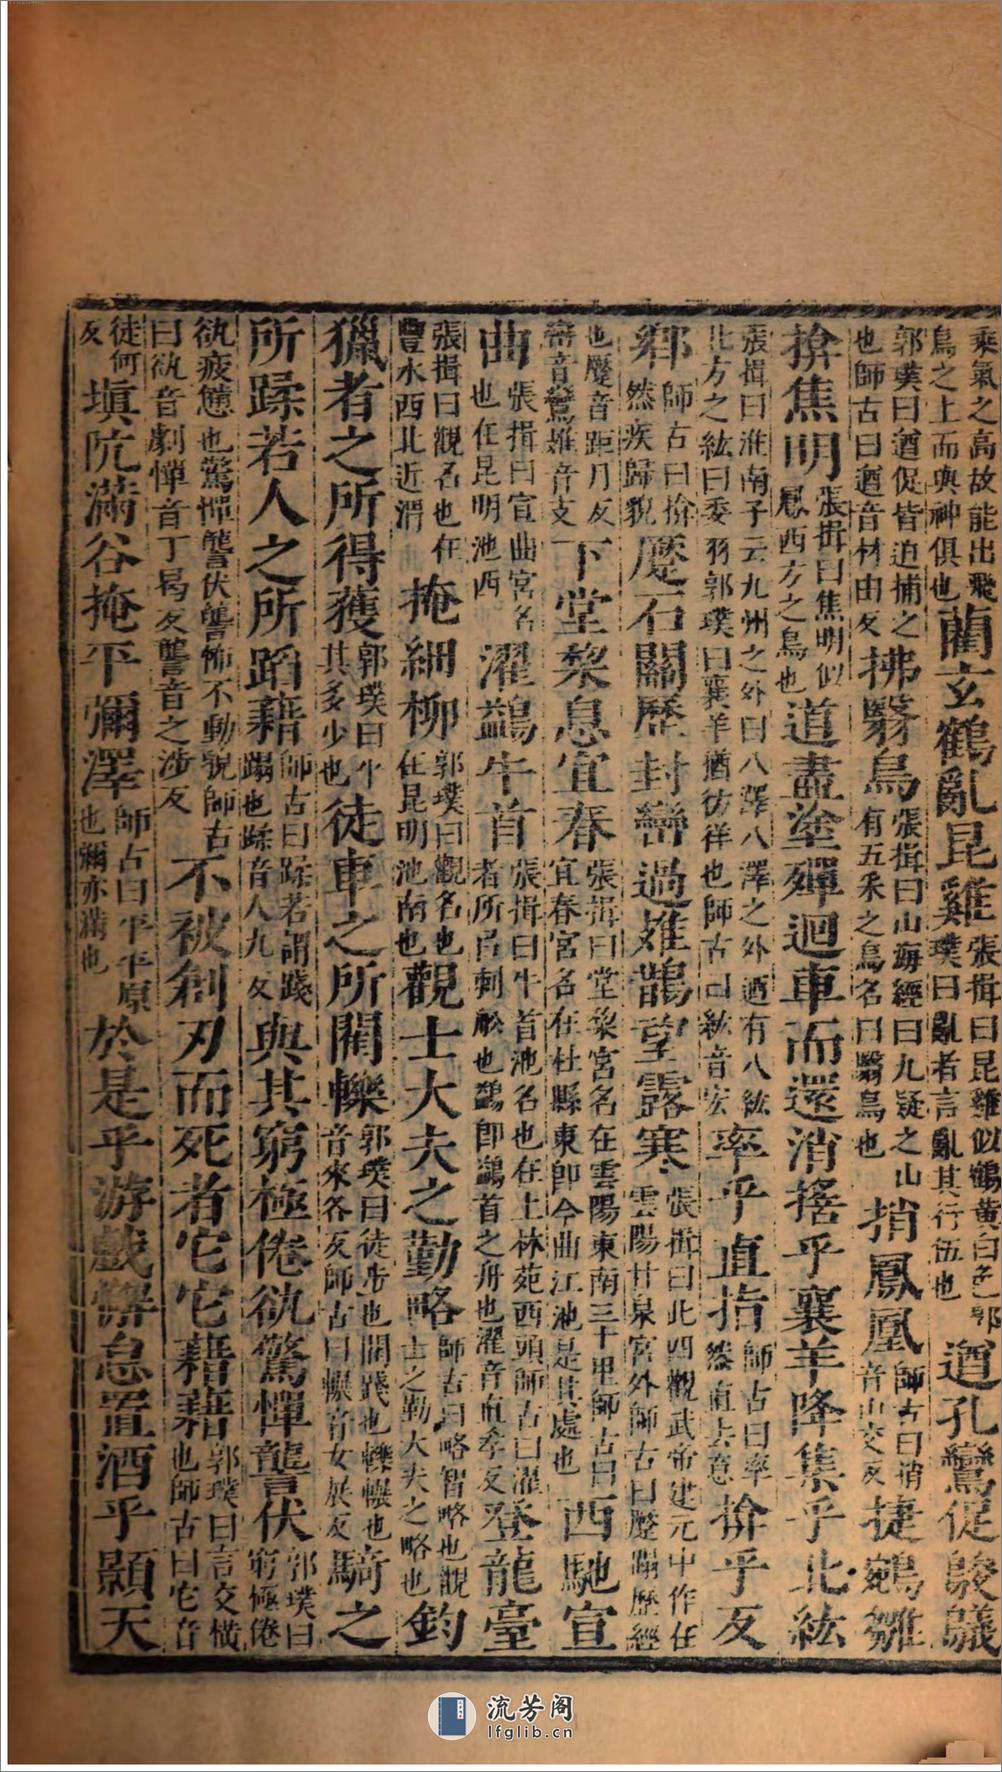 乘氣之高故能出飛鳥之上而與神俱也藺玄鶴亂昆雞張揖曰昆雞似鶴黃白色郭璞曰亂者言亂其行伍也遒孔鸞促鵔鸃
郭璞曰遒促皆迫捕之也師古曰遒音材由反拂翳鳥張揖曰山海經曰九疑之山有五采之鳥名曰翳鳥也捎鳳凰師古曰捎音山交反捷鵷雛
揜焦明張揖曰焦明似鳳西方之鳥也道盡塗殫迴車而還消搖乎襄羊降集乎北紘
張揖曰淮南子云九州之外曰八澤八澤之外迺有八紘北方之紘曰委羽郭璞曰襄羊猶彷徉也師古曰紘音宏率乎直指師古曰率然直去意揜乎反
鄉師古曰揜然疾歸貌蹷石關歷封巒過雉鵲望露寒張揖曰此四觀武帝建元中作在雲陽甘泉宮外師古曰蹷蹋歷經
也蹷音距月反鳷音支下堂棃息宜春張揖曰堂棃宮名在雲陽東南三十里師古曰宜春宮名在杜縣東即今曲江池是其處也西馳宣
曲張揖曰宣曲宮名也在昆明池西濯鷁牛首張揖曰牛首池名也在上林苑西頭師古曰濯者所以刺船也鷁即鷁首之舟也濯音直孝反登龍臺
張揖曰觀名也在豐水西北近渭掩細柳郭璞曰觀名也在昆明池南也觀士大夫之勤略師古曰略智略也觀士之勤大夫之略也鈞
獵者之所得獲郭璞曰平其多少也徒車之所閵轢郭璞曰徒步也閵踐也轢輾也音來各反師古曰輾音女展反騎之
所蹂若人之所蹈藉師古曰蹂若謂踐蹋也蹂音人九反與其窮極倦㕁驚憚讋伏郭璞曰窮極倦
㕁疲憊也驚憚讋伏讋怖不動貌師古曰㕁音劇憚音丁曷反讋音之涉反不被創刃而死者它它藉藉郭璞曰言交橫也師古曰它音
徒何反塡阬滿谷掩平彌澤師古曰平平原也彌亦滿也於是乎游戲懈怠置酒乎顥天
流芳阁
lfglib.cn